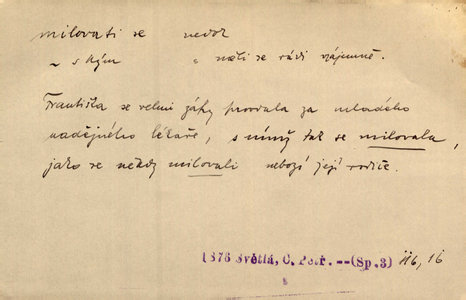 milovati se nedok
~ s kým " míti se rádi vzájemně.
Františka se velmi záhy provdala za mladého
nadějného lékaře, s nímž tak se milovala,
jako se někdy milovali nebozí její rodiče.
1876 Světlá, C. Petř. --(Sp.3) 116, 16